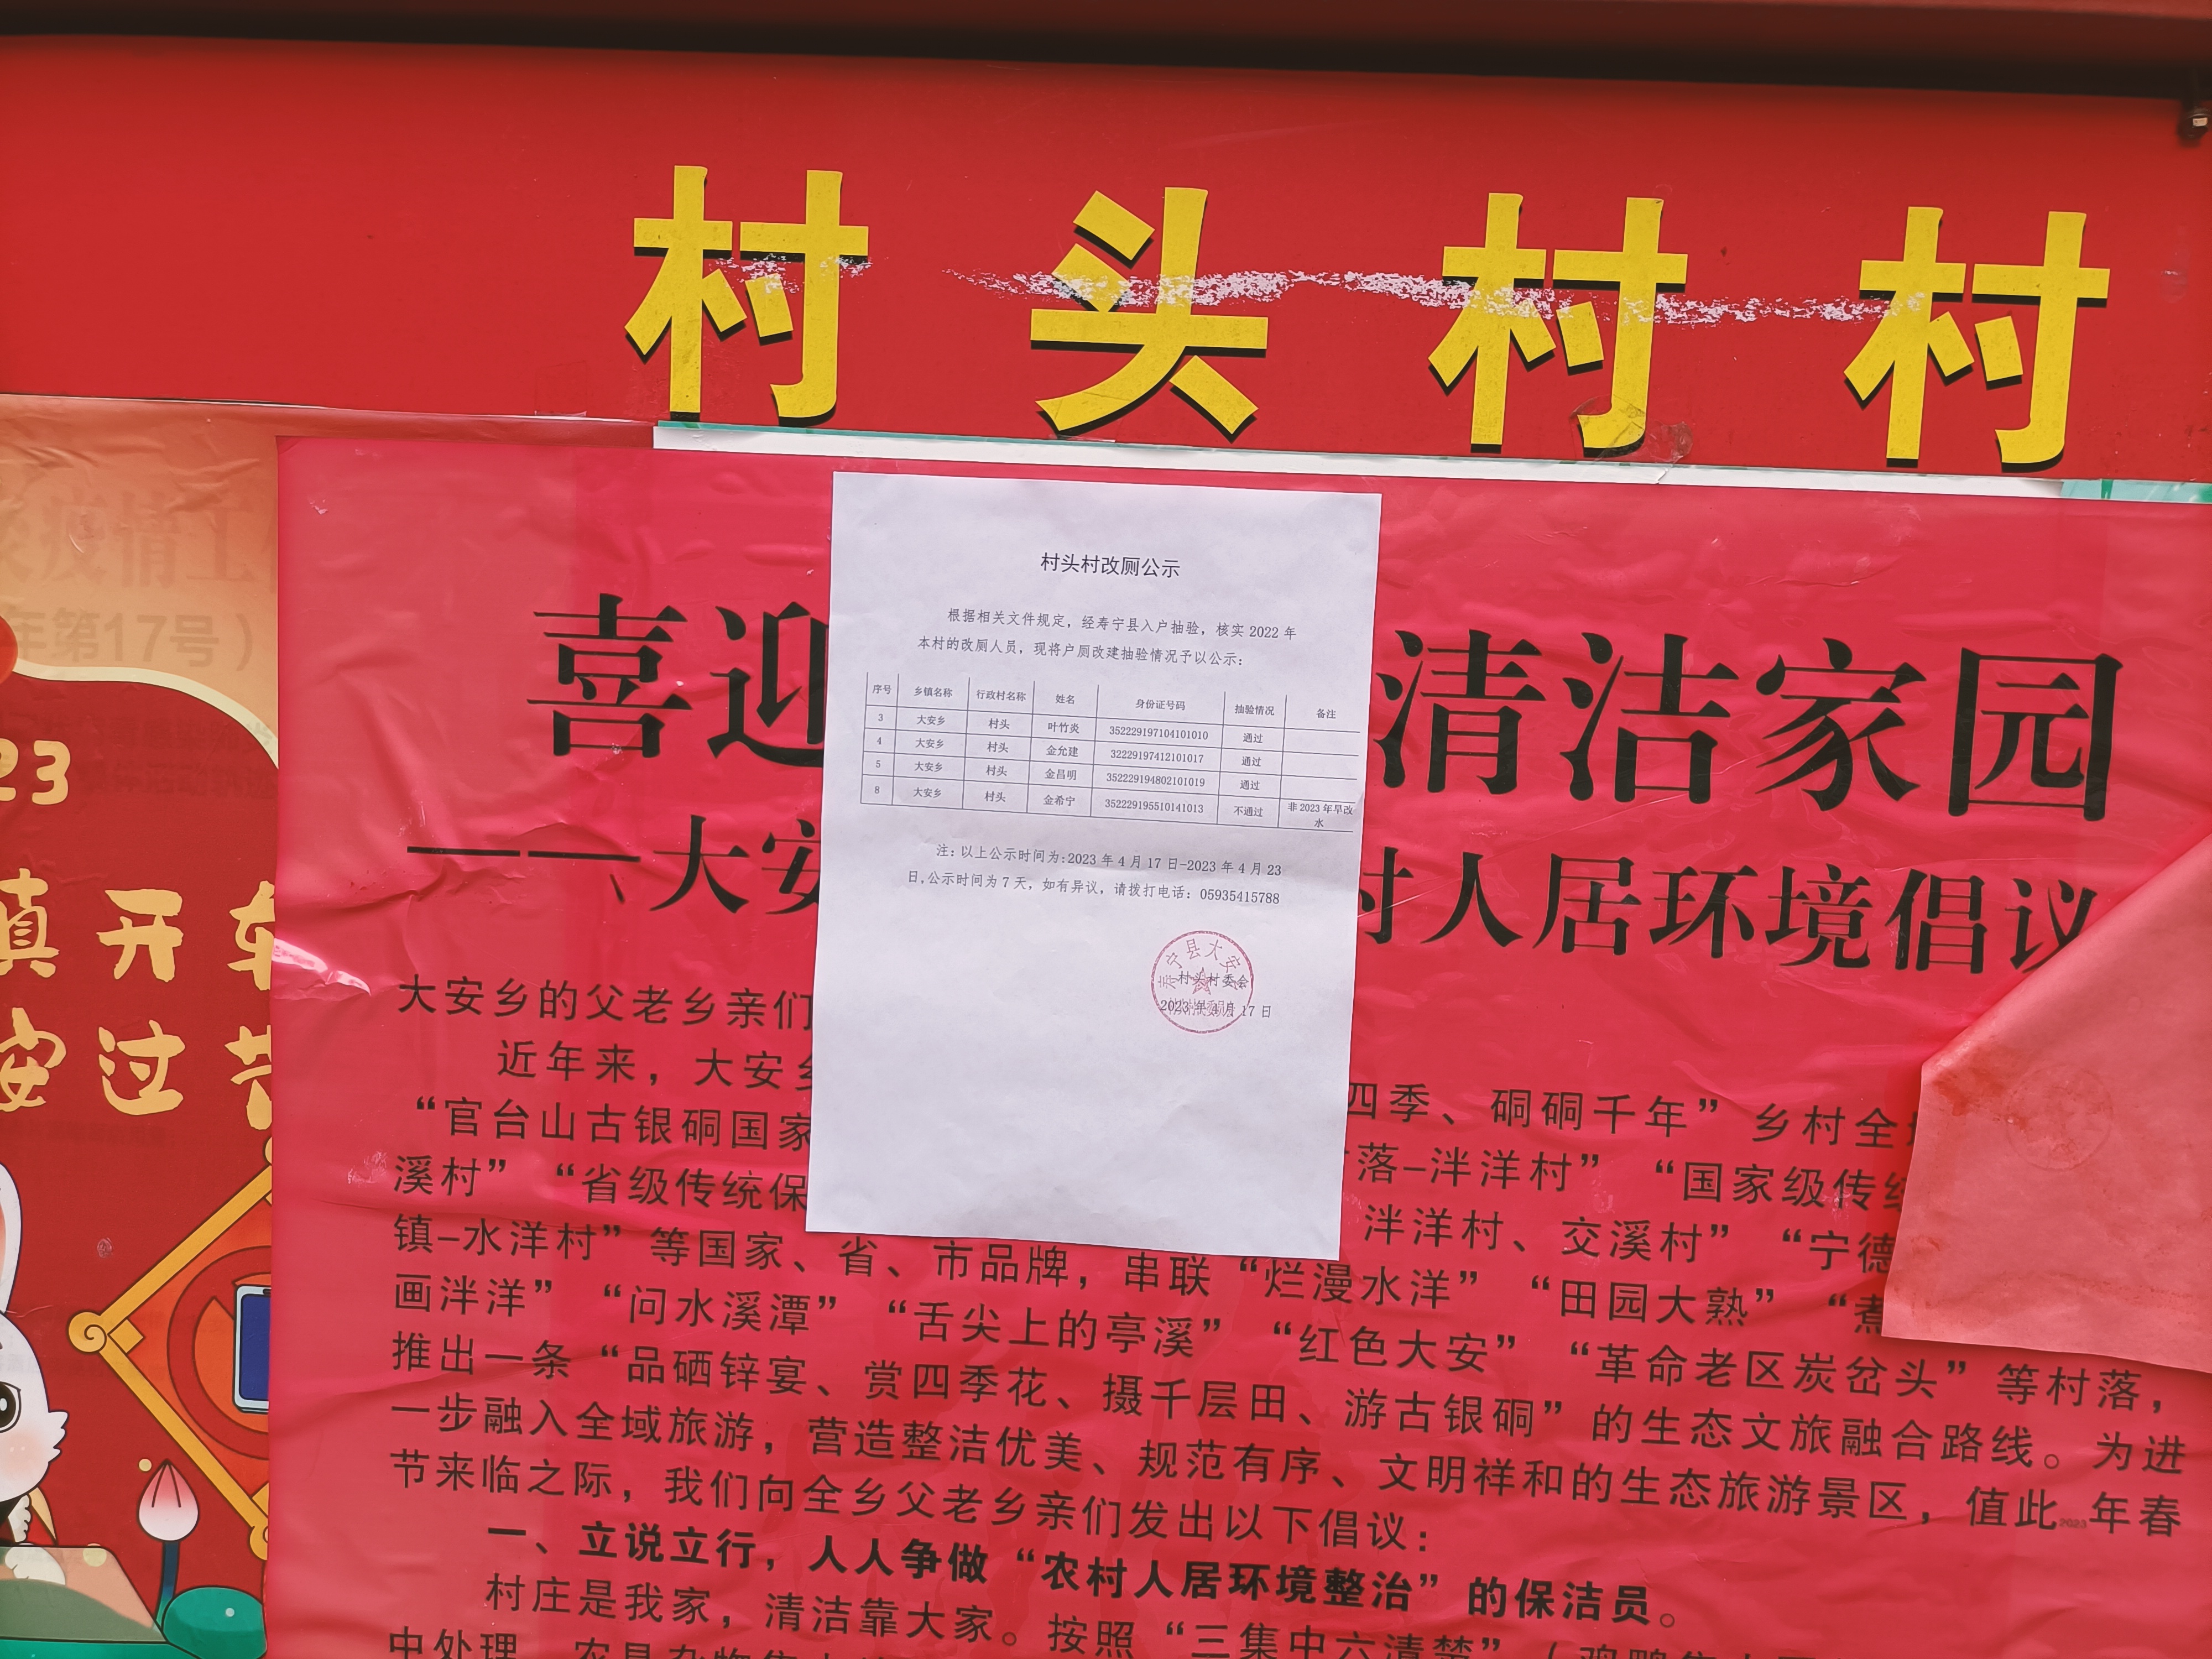 村头村村
炎疫情工
年第17号）
23
镇开车
安过节
喜迎 清洁家园
——大安 村人居环境倡议
大安乡的父老乡亲们
近年来，大安乡 四季、硐硐千年”乡村全
“官台山古银硐国家 落–泮洋村” “国家级传统
溪村” “省级传统保 泮洋村、交溪村” “宁德
镇–水洋村”等国家、省、市品牌，串联“烂漫水洋” “田园大熟” “煮
画泮洋” “问水溪潭” “舌尖上的亭溪” “红色大安” “革命老区炭岔头”等村落，
推出一条“品硒锌宴、赏四季花、摄千层田、游古银硐”的生态文旅融合路线。为进
一步融入全域旅游，营造整洁优美、规范有序、文明祥和的生态旅游景区，值此2023年春
节来临之际，我们向全乡父老乡亲们发出以下倡议：
一、立说立行，人人争做“农村人居环境整治”的保洁员。
村庄是我家，清洁靠大家。按照“三集中六清楚”（鸡鸭集中
中处理、农具杂物集中
村头村改厕公示
根据相关文件规定，经寿宁县入户抽验，核实 2022 年
本村的改厕人员，现将户厕改建抽验情况予以公示：
序号 乡镇名称 行政村名称 姓名 身份证号码 抽验情况 备注
3 大安乡 村头 叶竹炎 352229197104101010 通过
4 大安乡 村头 金允建 32229197412101017 通过
5 大安乡 村头 金昌明 352229194802101019 通过
8 大安乡 村头 金希宁 352229195510141013 不通过 非 2023 年早改
水
注：以上公示时间为:2023 年 4 月 17 日-2023 年 4 月 23
日,公示时间为 7 天，如有异议，请拨打电话：05935415788
寿宁县大安
村头村委会
2023 年 4 月 17 日